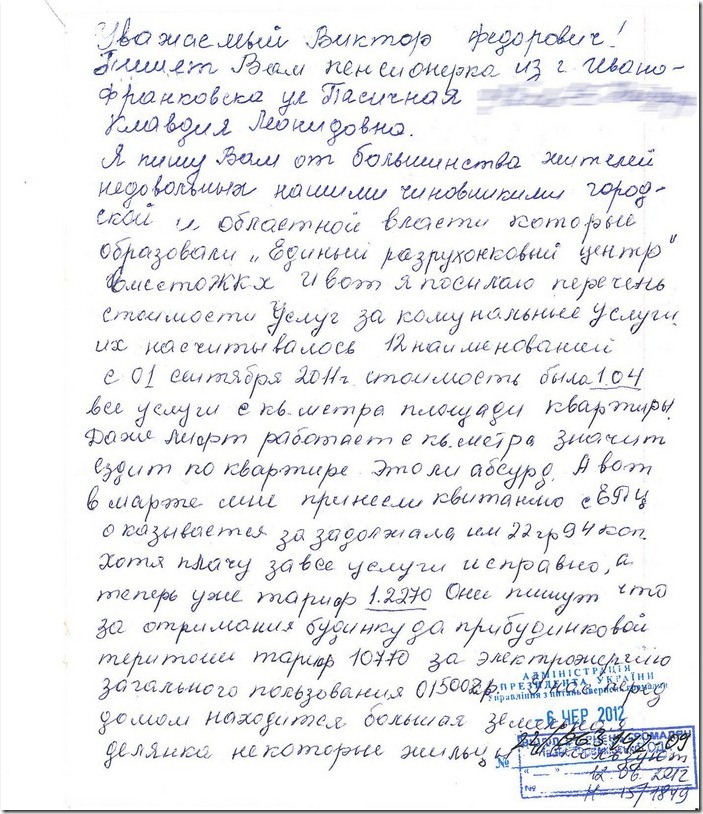 Уважаемый Виктор Федорович!
Пишет Вам пенсионерка из г. Ивано-
Франковска ул Пасичная
Клавдия Леонидовна.
Я пишу Вам от большинства жителей
недовольных нашими чиновниками город-
ской и областной власти которые
образовали „Единый разрухонковый центр"
вместо ЖКХ И вот я посылаю перечень
стоимости Услуг за комунальные услуги.
их насчитывалось 12 наименований
с 01 сентября 2011г. стоимость была 1.04
все услуги с кв.метра площади квартиры.
Даже лифт работает с кв.метра значит
ездит по квартире. это ли абсурд. А вот
в марте мне принесли квитанцию с ЕРЦ
оказывается за задолжала им 22 гр 94 коп.
Хотя плачу за все услуги исправно, а
теперь уже тариф 1.2270 Они пишут что
за отримания будинку да прибудинковой
територии тариф 10770 за электроэнергию
загального пользования 015002р. У нас перед
домом находится большая земельная
делянка некоторые жильцы
АДМІНІСТРАЦІЯ
ПРЕЗИДЕНТА УКРАЇНИ
Управління з питань звернень громадян
6 ЧЕР 2012
№
12.06.2012
№
15/1849